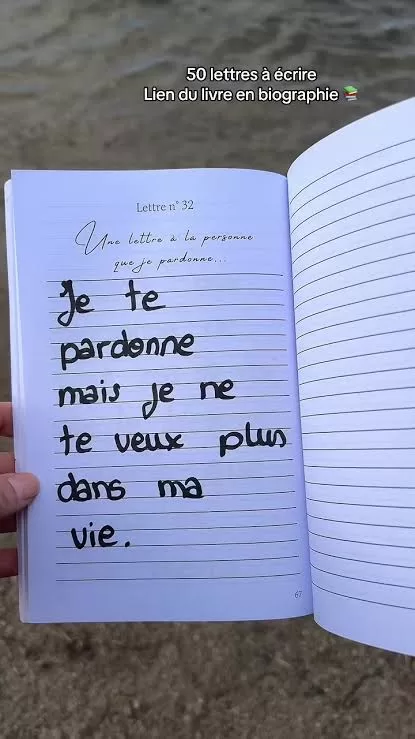 50 lettres à écrire
Lien du livre en biographie
Lettre n° 32
Une lettre à la personne
que je pardonne...
Je te
pardonne
mais je ne
te veux plus
dans ma
vie.
67